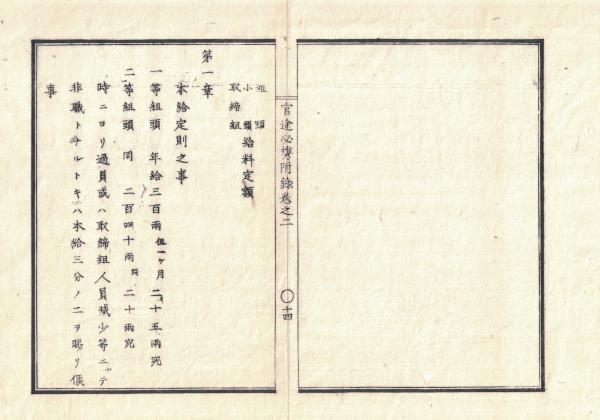 官途必携附録巻之二
十四
組頭
小頭 給料定額
取締組
第一章
本給定則之事
一等組頭 年給三百兩 但一ヶ月 二十五兩宛
二等組頭 同 二百四十兩 同 二十兩宛
時ニヨリ過員或ハ取締組人員減少等ニテ
非職トナルトキハ本給三分ノ二ヲ賜リ候
事